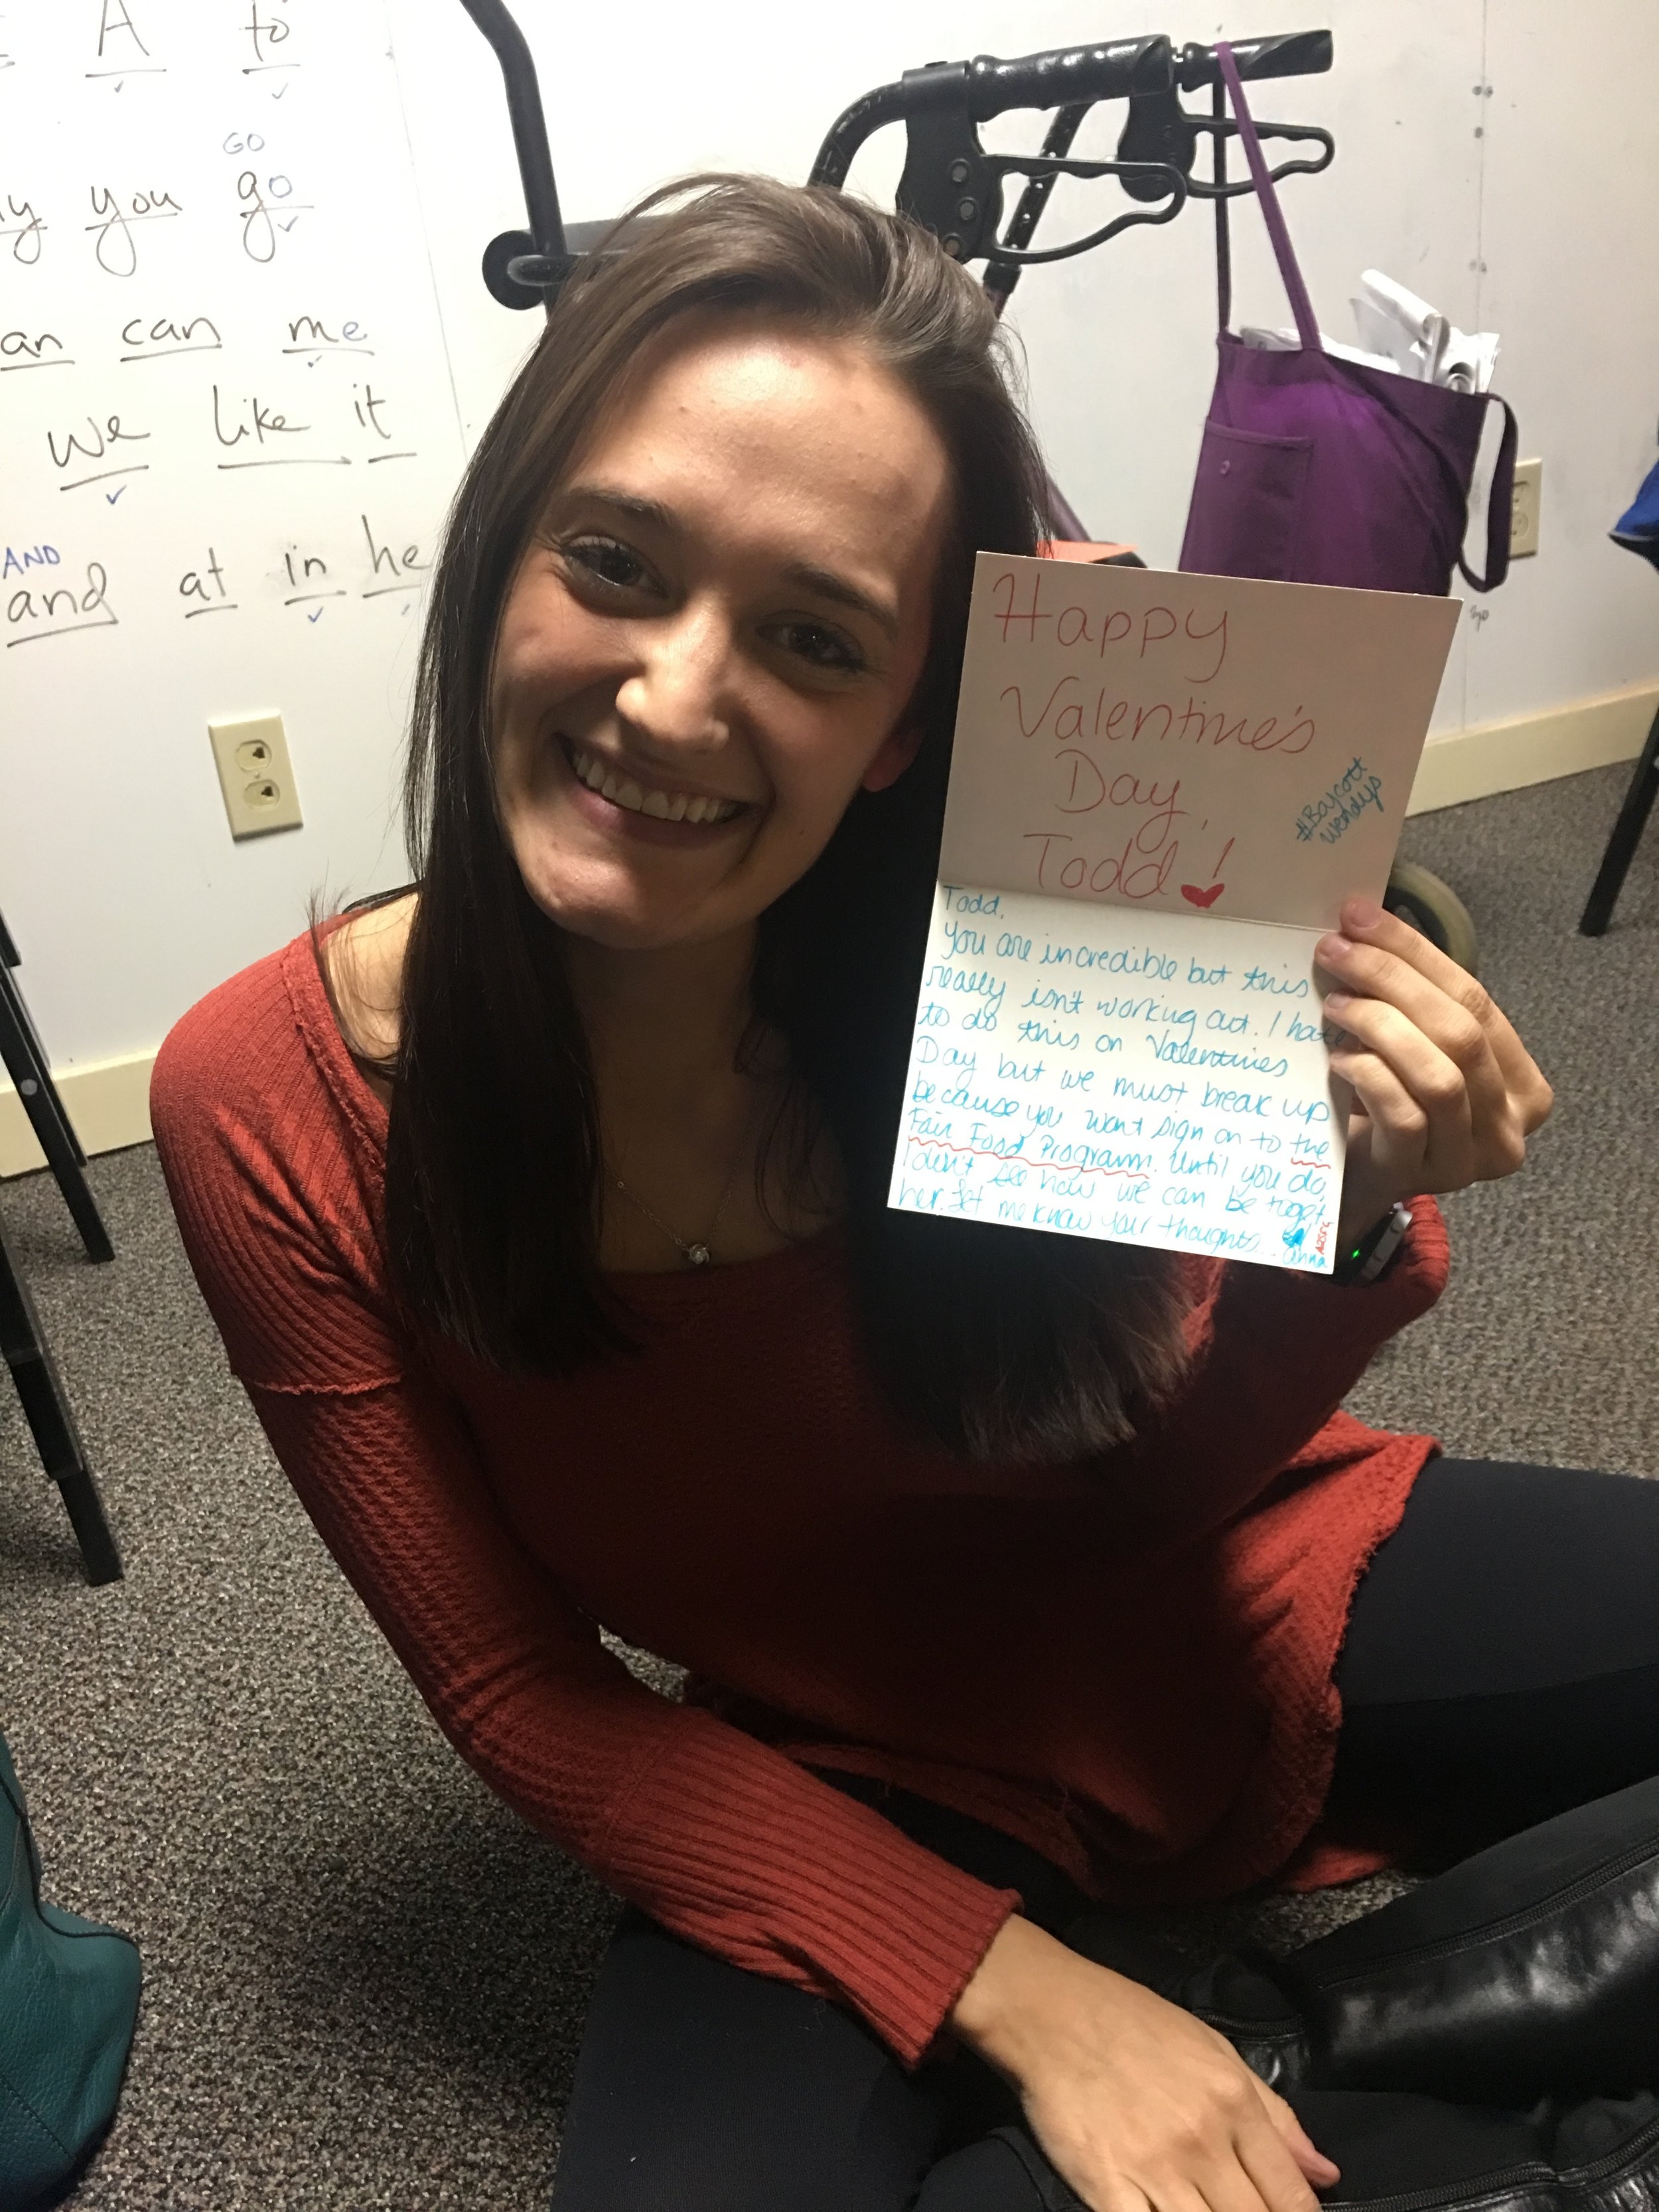 A to
GO
you go
an can me
we like it
AND
and at in he
Happy
Valentine's
Day,
Todd!
#Boycott
Wendys
Todd,
You are incredible but this
really isn't working out. I hate
to do this on Valentines
Day but we must break up
because you wont sign on to the
Fair Food Programm. Until you do,
I don't see how we can be toget
her. Let me know your thoughts...
Anna